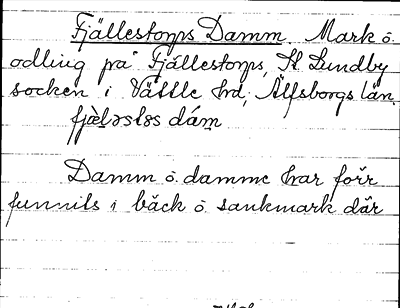 Fjällestorps Damm. Mark o.
odling på Fjällestorps, St Lundby
socken i Vättle hrd, Älfsborgs län.
fjæ̀lǝstǝs dám̥
Damm o. damme har förr
funnits i bäck o. sankmark där